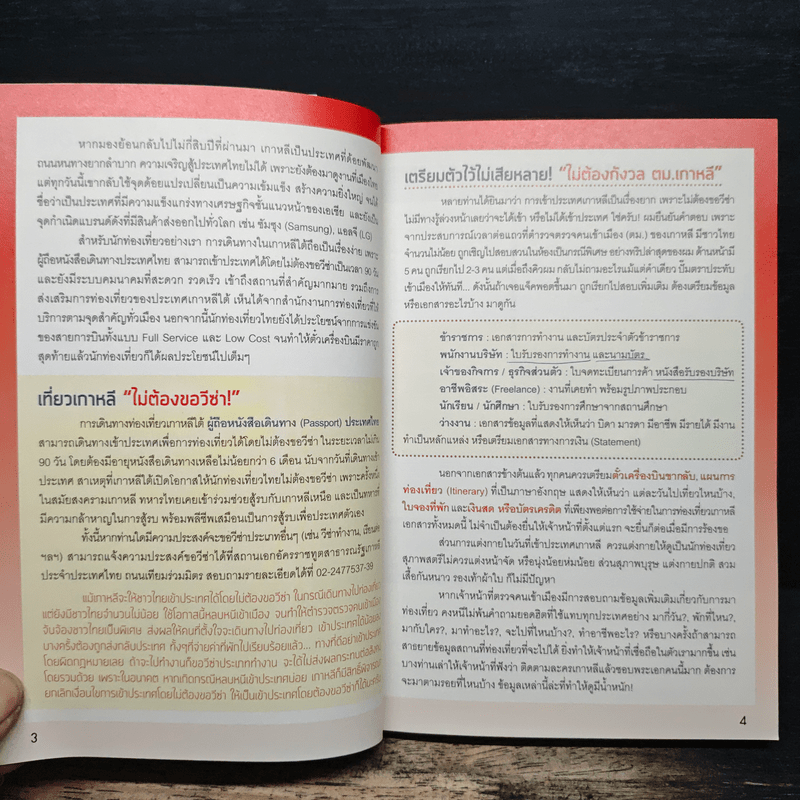 หากมองย้อนกลับไปไม่กี่สิบปีที่ผ่านมา เกาหลีเป็นประเทศที่ด้อยพัฒนา
ถนนหนทางยากลำบาก ความเจริญสู้ประเทศไทยไม่ได้ เพราะยังต้องมาดูงานที่เมืองไทย
แต่ทุกวันนี้เขากลับใช้จุดด้อยแปรเปลี่ยนเป็นความเข้มแข็ง สร้างความยิ่งใหญ่ จนได้
ชื่อว่าเป็นประเทศที่มีความแข็งแกร่งทางเศรษฐกิจชั้นแนวหน้าของเอเชีย และยังเป็น
จุดกำเนิดแบรนด์ดังที่มีสินค้าส่งออกไปทั่วโลก เช่น ซัมซุง (Samsung), แอลจี (LG)
สำหรับนักท่องเที่ยวอย่างเรา การเดินทางในเกาหลีใต้ถือเป็นเรื่องง่าย เพราะ
ผู้ถือหนังสือเดินทางประเทศไทย สามารถเข้าประเทศได้โดยไม่ต้องขอวีซ่าเป็นเวลา 90 วัน
และยังมีระบบคมนาคมที่สะดวก รวดเร็ว เข้าถึงสถานที่สำคัญมากมาย รวมถึงการ
ส่งเสริมการท่องเที่ยวของประเทศเกาหลีใต้ เห็นได้จากสำนักงานการท่องเที่ยวที่ให้
บริการตามจุดสำคัญทั่วเมือง นอกจากนี้นักท่องเที่ยวไทยยังได้ประโยชน์จากการแข่งขัน
ของสายการบินทั้งแบบ Full Service และ Low Cost จนทำให้ตั๋วเครื่องบินมีราคาถูก
สุดท้ายแล้วนักท่องเที่ยวก็ได้ผลประโยชน์ไปเต็มๆ
เที่ยวเกาหลี "ไม่ต้องขอวีซ่า!"
การเดินทางท่องเที่ยวเกาหลีใต้ ผู้ถือหนังสือเดินทาง (Passport) ประเทศไทย
สามารถเดินทางเข้าประเทศเพื่อการท่องเที่ยวได้โดยไม่ต้องขอวีซ่า ในระยะเวลาไม่เกิน
90 วัน โดยต้องมีอายุหนังสือเดินทางเหลือไม่น้อยกว่า 6 เดือน นับจากวันที่เดินทางเข้า
ประเทศ สาเหตุที่เกาหลีใต้เปิดโอกาสให้นักท่องเที่ยวไทยไม่ต้องขอวีซ่า เพราะครั้งหนึ่ง
ในสมัยสงครามเกาหลี ทหารไทยเคยเข้าร่วมช่วยสู้รบกับเกาหลีเหนือ และเป็นทหารที่
มีความกล้าหาญในการสู้รบ พร้อมพลีชีพเสมือนเป็นการสู้รบเพื่อประเทศตัวเอง
ทั้งนี้หากท่านใดมีความประสงค์จะขอวีซ่าประเภทอื่นๆ (เช่น วีซ่าทำงาน, เรียนต่อ
ฯลฯ) สามารถแจ้งความประสงค์ขอวีซ่าได้ที่สถานเอกอัครราชทูตสาธารณรัฐเกาหลี
ประจำประเทศไทย ถนนเทียมร่วมมิตร สอบถามรายละเอียดได้ที่ 02-2477537-39
แม้เกาหลีจะให้ชาวไทยเข้าประเทศได้โดยไม่ต้องขอวีซ่า ในกรณีเดินทางไปท่องเที่ยว
แต่ยังมีชาวไทยจำนวนไม่น้อย ใช้โอกาสนี้หลบหนีเข้าเมือง จนทำให้ตำรวจตรวจคนเข้าเมือง
จับจ้องชาวไทยเป็นพิเศษ ส่งผลให้คนที่ตั้งใจจะเดินทางไปท่องเที่ยว เข้าประเทศได้น้อยลง
บางครั้งต้องถูกส่งกลับประเทศ ทั้งๆที่จ่ายค่าที่พักไปเรียบร้อยแล้ว... ทางที่ดีอย่าเข้าประเทศ
โดยผิดกฎหมายเลย ถ้าจะไปทำงานก็ขอวีซ่าประเภททำงาน จะได้ไม่ส่งผลกระทบต่อสังคม
โดยรวมด้วย เพราะในอนาคต หากเกิดกรณีหลบหนีเข้าประเทศบ่อย เกาหลีก็มีสิทธิ์พิจารณา
ยกเลิกเงื่อนไขการเข้าประเทศโดยไม่ต้องขอวีซ่า ให้เป็นเข้าประเทศโดยต้องขอวีซ่าก็ได้นะครับ
3
เตรียมตัวไว้ไม่เสียหลาย! "ไม่ต้องกังวล ตม.เกาหลี"
หลายท่านได้ยินมาว่า การเข้าประเทศเกาหลีเป็นเรื่องยาก เพราะไม่ต้องขอวีซ่า
ไม่มีทางรู้ล่วงหน้าเลยว่าจะได้เข้า หรือไม่ได้เข้าประเทศ ใช่ครับ! ผมยืนยันคำตอบ เพราะ
จากประสบการณ์เวลาต่อแถวที่ตำรวจตรวจคนเข้าเมือง (ตม.) ของเกาหลี มีชาวไทย
จำนวนไม่น้อย ถูกเชิญไปสอบสวนในห้องเป็นกรณีพิเศษ อย่างทริปล่าสุดของผม ด้านหน้ามี
5 คน ถูกเรียกไป 2-3 คน แต่เมื่อถึงคิวผม กลับไม่ถามอะไรแม้แต่คำเดียว ปั๊มตราประทับ
เข้าเมืองให้ทันที... ดังนั้นถ้าเจอแจ็คพอตขึ้นมา ถูกเรียกไปสอบเพิ่มเติม ต้องเตรียมข้อมูล
หรือเอกสารอะไรบ้าง มาดูกัน
ข้าราชการ : เอกสารการทำงาน และบัตรประจำตัวข้าราชการ
พนักงานบริษัท : ใบรับรองการทำงาน และนามบัตร
เจ้าของกิจการ / ธุรกิจส่วนตัว : ใบจดทะเบียนการค้า หนังสือรับรองบริษัท
อาชีพอิสระ (Freelance) : งานที่เคยทำ พร้อมรูปภาพประกอบ
นักเรียน / นักศึกษา : ใบรับรองการศึกษาจากสถานศึกษา
ว่างงาน : เอกสารข้อมูลที่แสดงให้เห็นว่า บิดา มารดา มีอาชีพ มีรายได้ มีงาน
ทำเป็นหลักแหล่ง หรือเตรียมเอกสารทางการเงิน (Statement)
นอกจากเอกสารข้างต้นแล้ว ทุกคนควรเตรียมตั๋วเครื่องบินขากลับ, แผนการ
ท่องเที่ยว (Itinerary) ที่เป็นภาษาอังกฤษ แสดงให้เห็นว่า แต่ละวันไปเที่ยวไหนบ้าง,
ใบจองที่พัก และเงินสด หรือบัตรเครดิต ที่เพียงพอต่อการใช้จ่ายในการท่องเที่ยวเกาหลี
เอกสารทั้งหมดนี้ ไม่จำเป็นต้องยื่นให้เจ้าหน้าที่ตั้งแต่แรก จะยื่นก็ต่อเมื่อมีการร้องขอ
ส่วนการแต่งกายในวันที่เข้าประเทศเกาหลี ควรแต่งกายให้ดูเป็นนักท่องเที่ยว
สุภาพสตรีไม่ควรแต่งหน้าจัด หรือนุ่งน้อยห่มน้อย ส่วนสุภาพบุรุษ แต่งกายปกติ สวม
เสื้อกันหนาว รองเท้าผ้าใบ ก็ไม่มีปัญหา
หากเจ้าหน้าที่ตรวจคนเข้าเมืองมีการสอบถามข้อมูลเพิ่มเติมเกี่ยวกับการมา
ท่องเที่ยว คงหนีไม่พ้นคำถามยอดฮิตที่ใช้แทบทุกประเทศอย่าง มากี่วัน?, พักที่ไหน?,
มากับใคร?, มาทำอะไร?, จะไปที่ไหนบ้าง?, ทำอาชีพอะไร? หรือบางครั้งถ้าสามารถ
สาธยายข้อมูลสถานที่ท่องเที่ยวที่จะไปได้ ยิ่งทำให้เจ้าหน้าที่เชื่อถือในตัวเรามากขึ้น เช่น
บางท่านเล่าให้เจ้าหน้าที่ฟังว่า ติดตามละครเกาหลีแล้วชอบพระเอกคนนี้มาก ต้องการ
จะมาตามรอยที่ไหนบ้าง ข้อมูลเหล่านี้ล่ะที่ทำให้ดูมีน้ำหนัก!
4